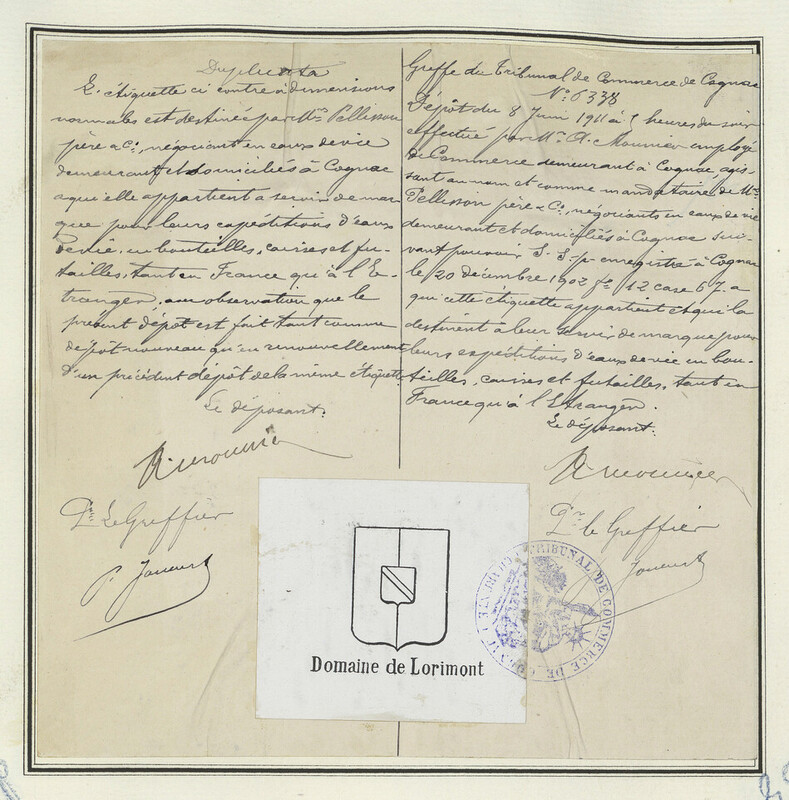 Duplicata
L'étiquette ci contre à dimensions
normales est destinée par Mrs Pellisson
père & Cie, négociant en eaux de vie
demeurant et domiciliés à Cognac
a qui elle appartient a servir de mar
que pour leurs expéditions d'eaux
de vie, en bouteilles, caisses et fu-
tailles, tant en France qu'à l'E-
tranger, observation que le
présent dépôt est fait tant comme
dépôt nouveau qu'en renouvellement
d'un précédent dépôt de la même étiquette
Le déposant:
A. Mounier
Pr Le Greffier
P. Jouvert
Greffe du Tribunal de Commerce de Cognac
No 6338
Dépôt du 8 Juin 1911 à heures du soir
effectué par Mr A. Mounier employé
de Commerce demeurant à Cognac, agis
sant au nom et comme mandataire de Mrs
Pellisson père & Cie, négociants en eaux de vie
demeurant et domiciliés à Cognac sui-
vant pouvoir S. S. p. enregistré à Cognac
le 20 décembre 1902 fo 12 case 67. a
qui cette étiquette appartient et qui la
destinent à leur servir de marque pour
leurs expéditions d'eaux de vie en bou-
teilles, caisses et futailles, tant en
France qu'à l'Etranger.
Le déposant:
A. Mounier
Pr le Greffier
Jouvert
Domaine de Lorimont
TRIBUNAL DE COMMERCE DE COGNAC